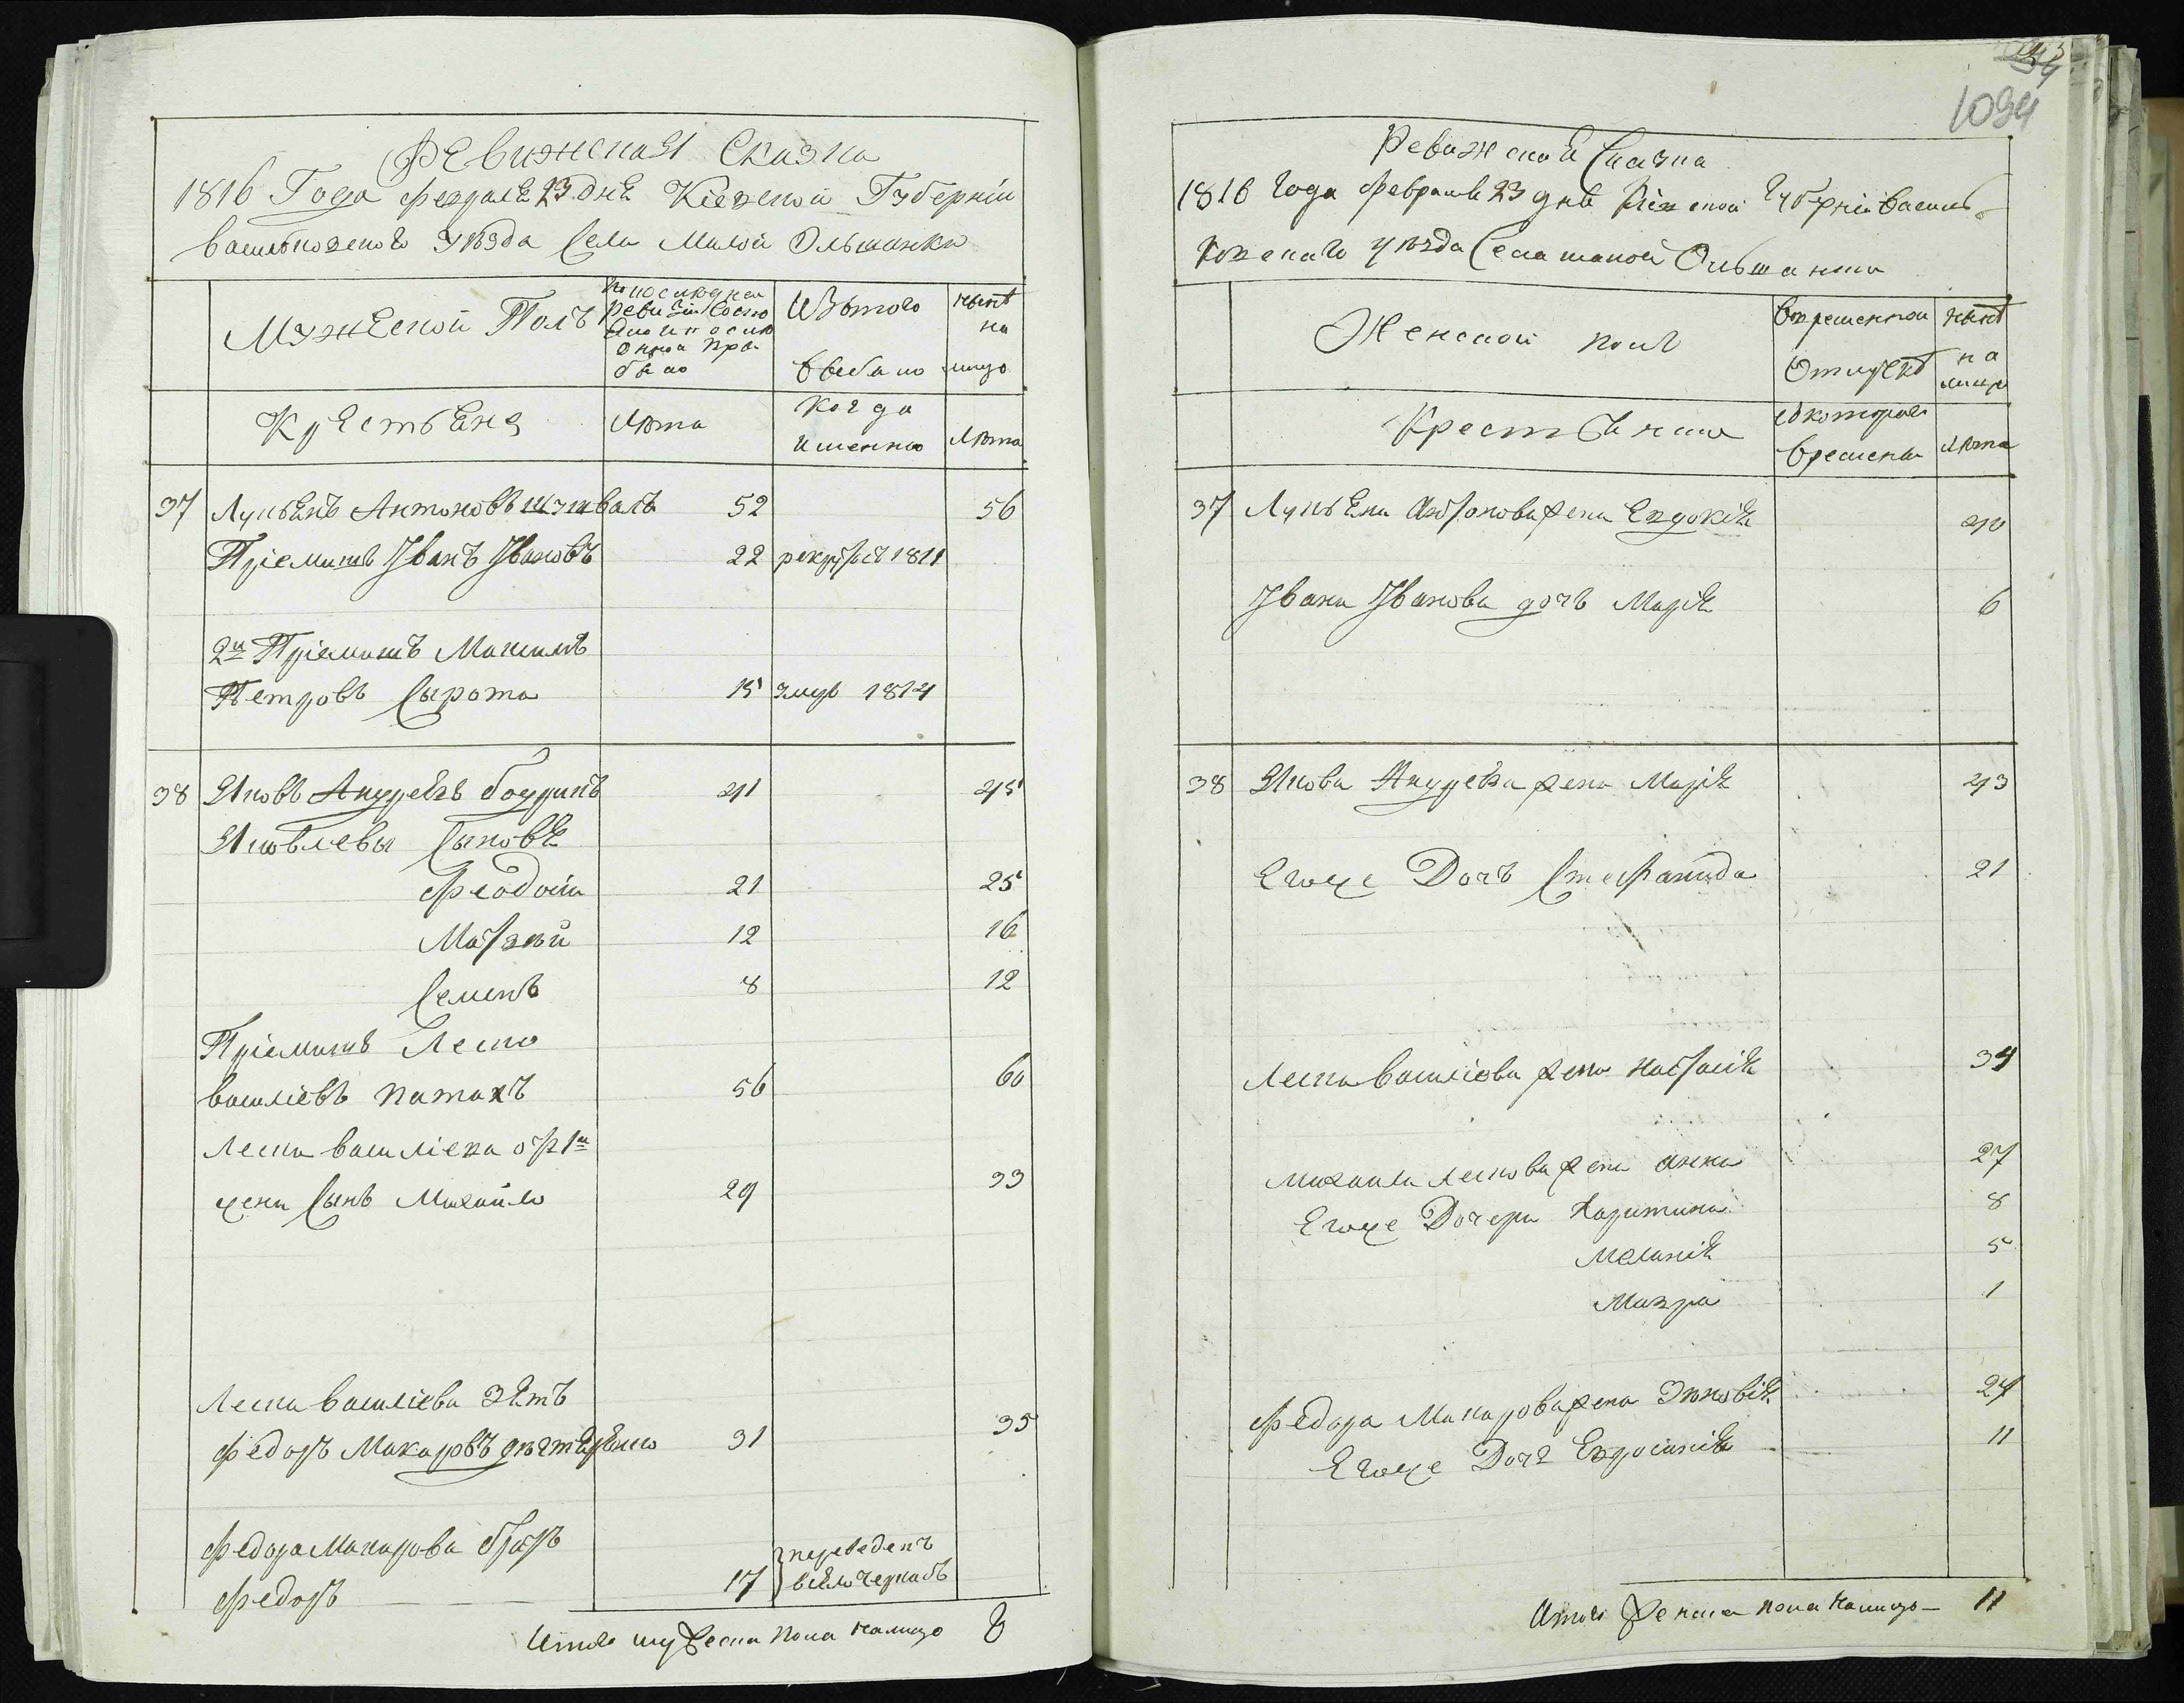 Ревижская Сказка
1816 Года февралѧ 23 днѧ Кіевской Губерніи
васильковского Уѣзда Села Малой Ольшанки
Мужеской Полъ
по последней
Ревизіи Состо
было
Изътого
выбыло
нынѣ
на
лицо
Крестьѧне
Лѣта
когда
именно
Лѣта
37 Лукьѧнъ Антоновъ 52 56
Пріемышъ Іванъ Івановъ 22 рекрутъ 1811
2й Пріемышъ Максимъ
Петровъ Сырота 15 умръ 1814
38 Яковъ Андреѧвъ 41 45
Яковлевы Сыновѧ
Феодосій 21 25
Матвѣй 12 16
Семенъ 8 12
Пріемышъ Леско
василіевъ 56 60
Леска василіева от 1й
жены Сынъ Михайло 29 33
Леска василіева Зѧть
Федоръ Макаровъ 31 35
Федора Макарова братъ
Федоръ — — — 17
переведенъ
Итого мужеска пола налицо 8
1094
Ревижской Сказка
1816 Года февралѧ 23 днѧ Кіевской Губерніи василь-
ковскаго уѣзда Села малой Ольшанки
Женской полъ
Вовременной
Отлучкѣ
нынѣ
на
лицо
Крестьѧнки
Съкотораго
времены
Лѣта
37 Лукьѧна Антонова жена Евдокіѧ 40
Івана Іванова дочь Маріѧ 6
38 Якова Андреѧва жена Маріѧ 43
Егоже Дочь Стефанида 21
Леска василіева жена Настасіѧ 34
Михайла Лескова жена Анна 27
Егоже Дочери Харитина 8
Меланіѧ 5
Мавра 1
Федора Макарова жена Зѣновіѧ 27
Егоже Дочь Евдокіѧ 11
Итого Женска пола налицо — 11